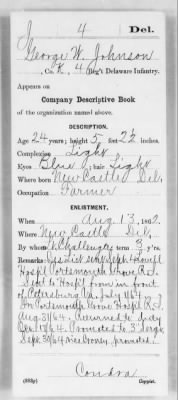 J 4 Del.
George W. Johnson
Co. K, 4 Reg't Delaware Infantry.
Appears on
Company Descriptive Book
of the organization named above.
DESCRIPTION.
Age 24 years; height 5 feet 2½ inches.
Complexion Light
Eyes Blue; hair Light
Where born New Castle Del.
Occupation Farmer
ENLISTMENT.
When Aug 13, 1862.
Where New Castle Del.
By whom Challenger term 3 y'rs.
Remarks: Sick sent Lovell
Hosp'l Portsmouth Grove R.I.
Sent to Hosp'l from in front
of Petersburg Va. July 1/64
In Portsmouth Grove Hosp R.I.
Aug 31/64. Returned to duty
Promoted to Serg't
Sept promoted.
Condra
(383g) Copyist.